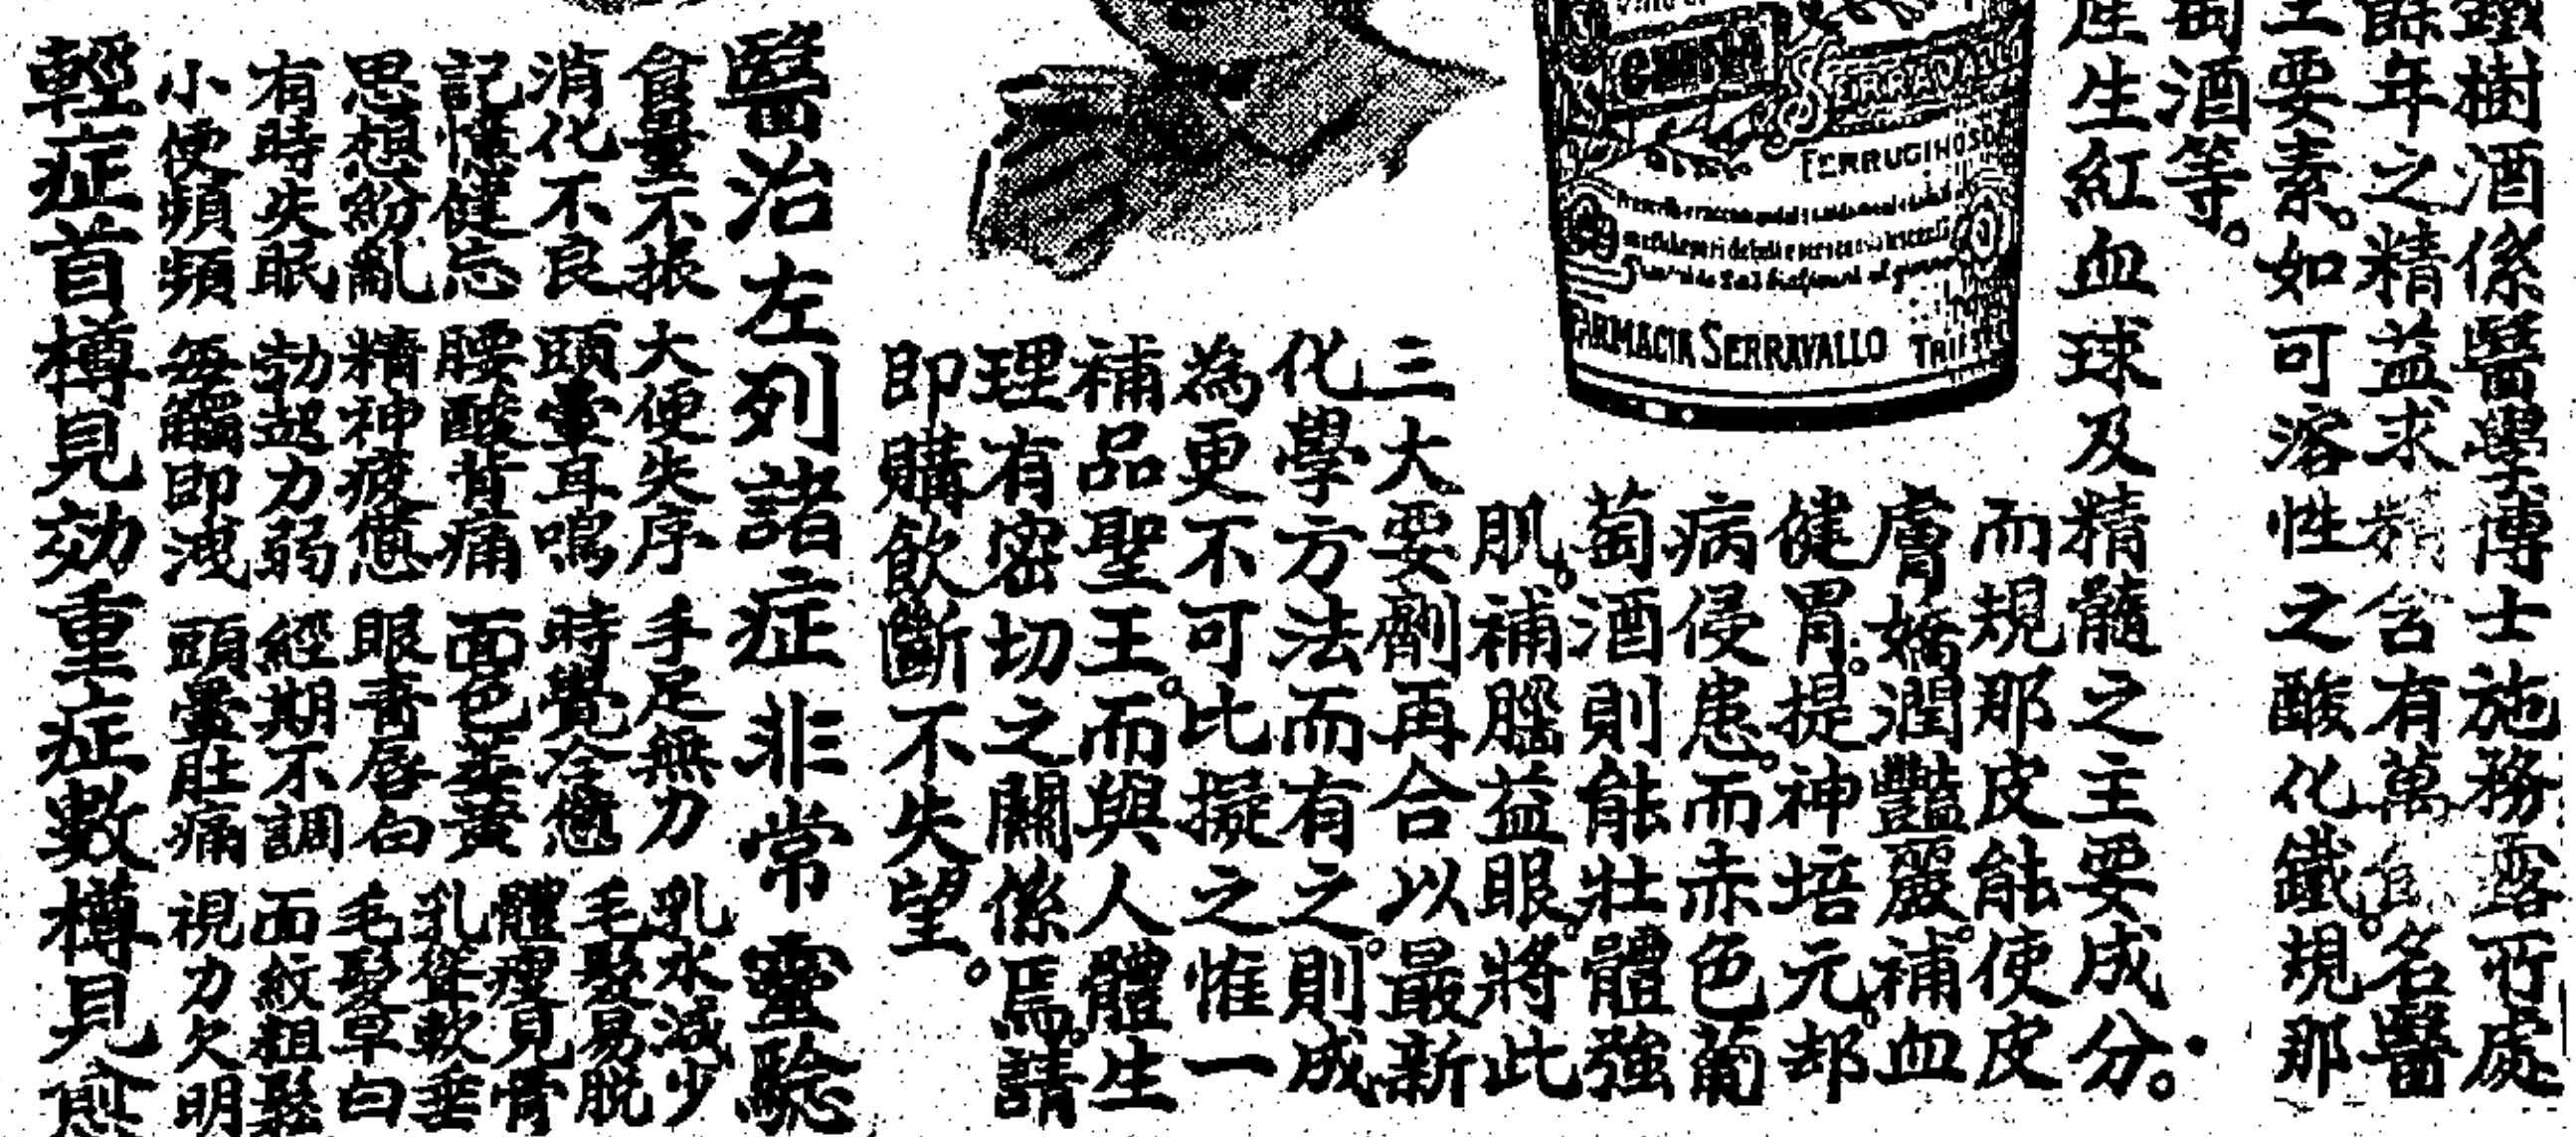 鐵樹酒係醫學博士施務露所處
餘年之精益求精含有萬 名醫
主要素。如可溶性之酸化鐵規那
萄酒等。
產生紅血球及精髓之主要成分。
而規那皮能使皮
膚嬌潤豔麗。補血
健胃。提神培元。却
病侵患。而赤色葡
萄酒則能壯體強
肌。補腦益眼。將此
三大要劑再合以最新
化學方法而有之。則成
為更不可比擬之惟一
補品聖王。而與人體生
理有密切之關係焉。請
即購飲斷不失望。
SERRAVALLO
FERRUGINOSO
FARMACIA SERRAVALLO TRIESTE
醫治左列諸症非常靈驗
食量不振 大便失序 手足無力 乳水減少
消化不良 頭暈耳鳴 時覺冷 毛髮易脫
記 健忘 腰酸背痛 面色萎黃 體瘦見骨
思想紛亂 精神疲憊 眼青唇白 乳聳軟垂
有時失眠 勃起力弱 經期不調 毛髮早白
小便頻頻 每 即洩 頭暈肚痛 面紋粗鬆
視力欠明
輕症首樽見効重症數樽見愈